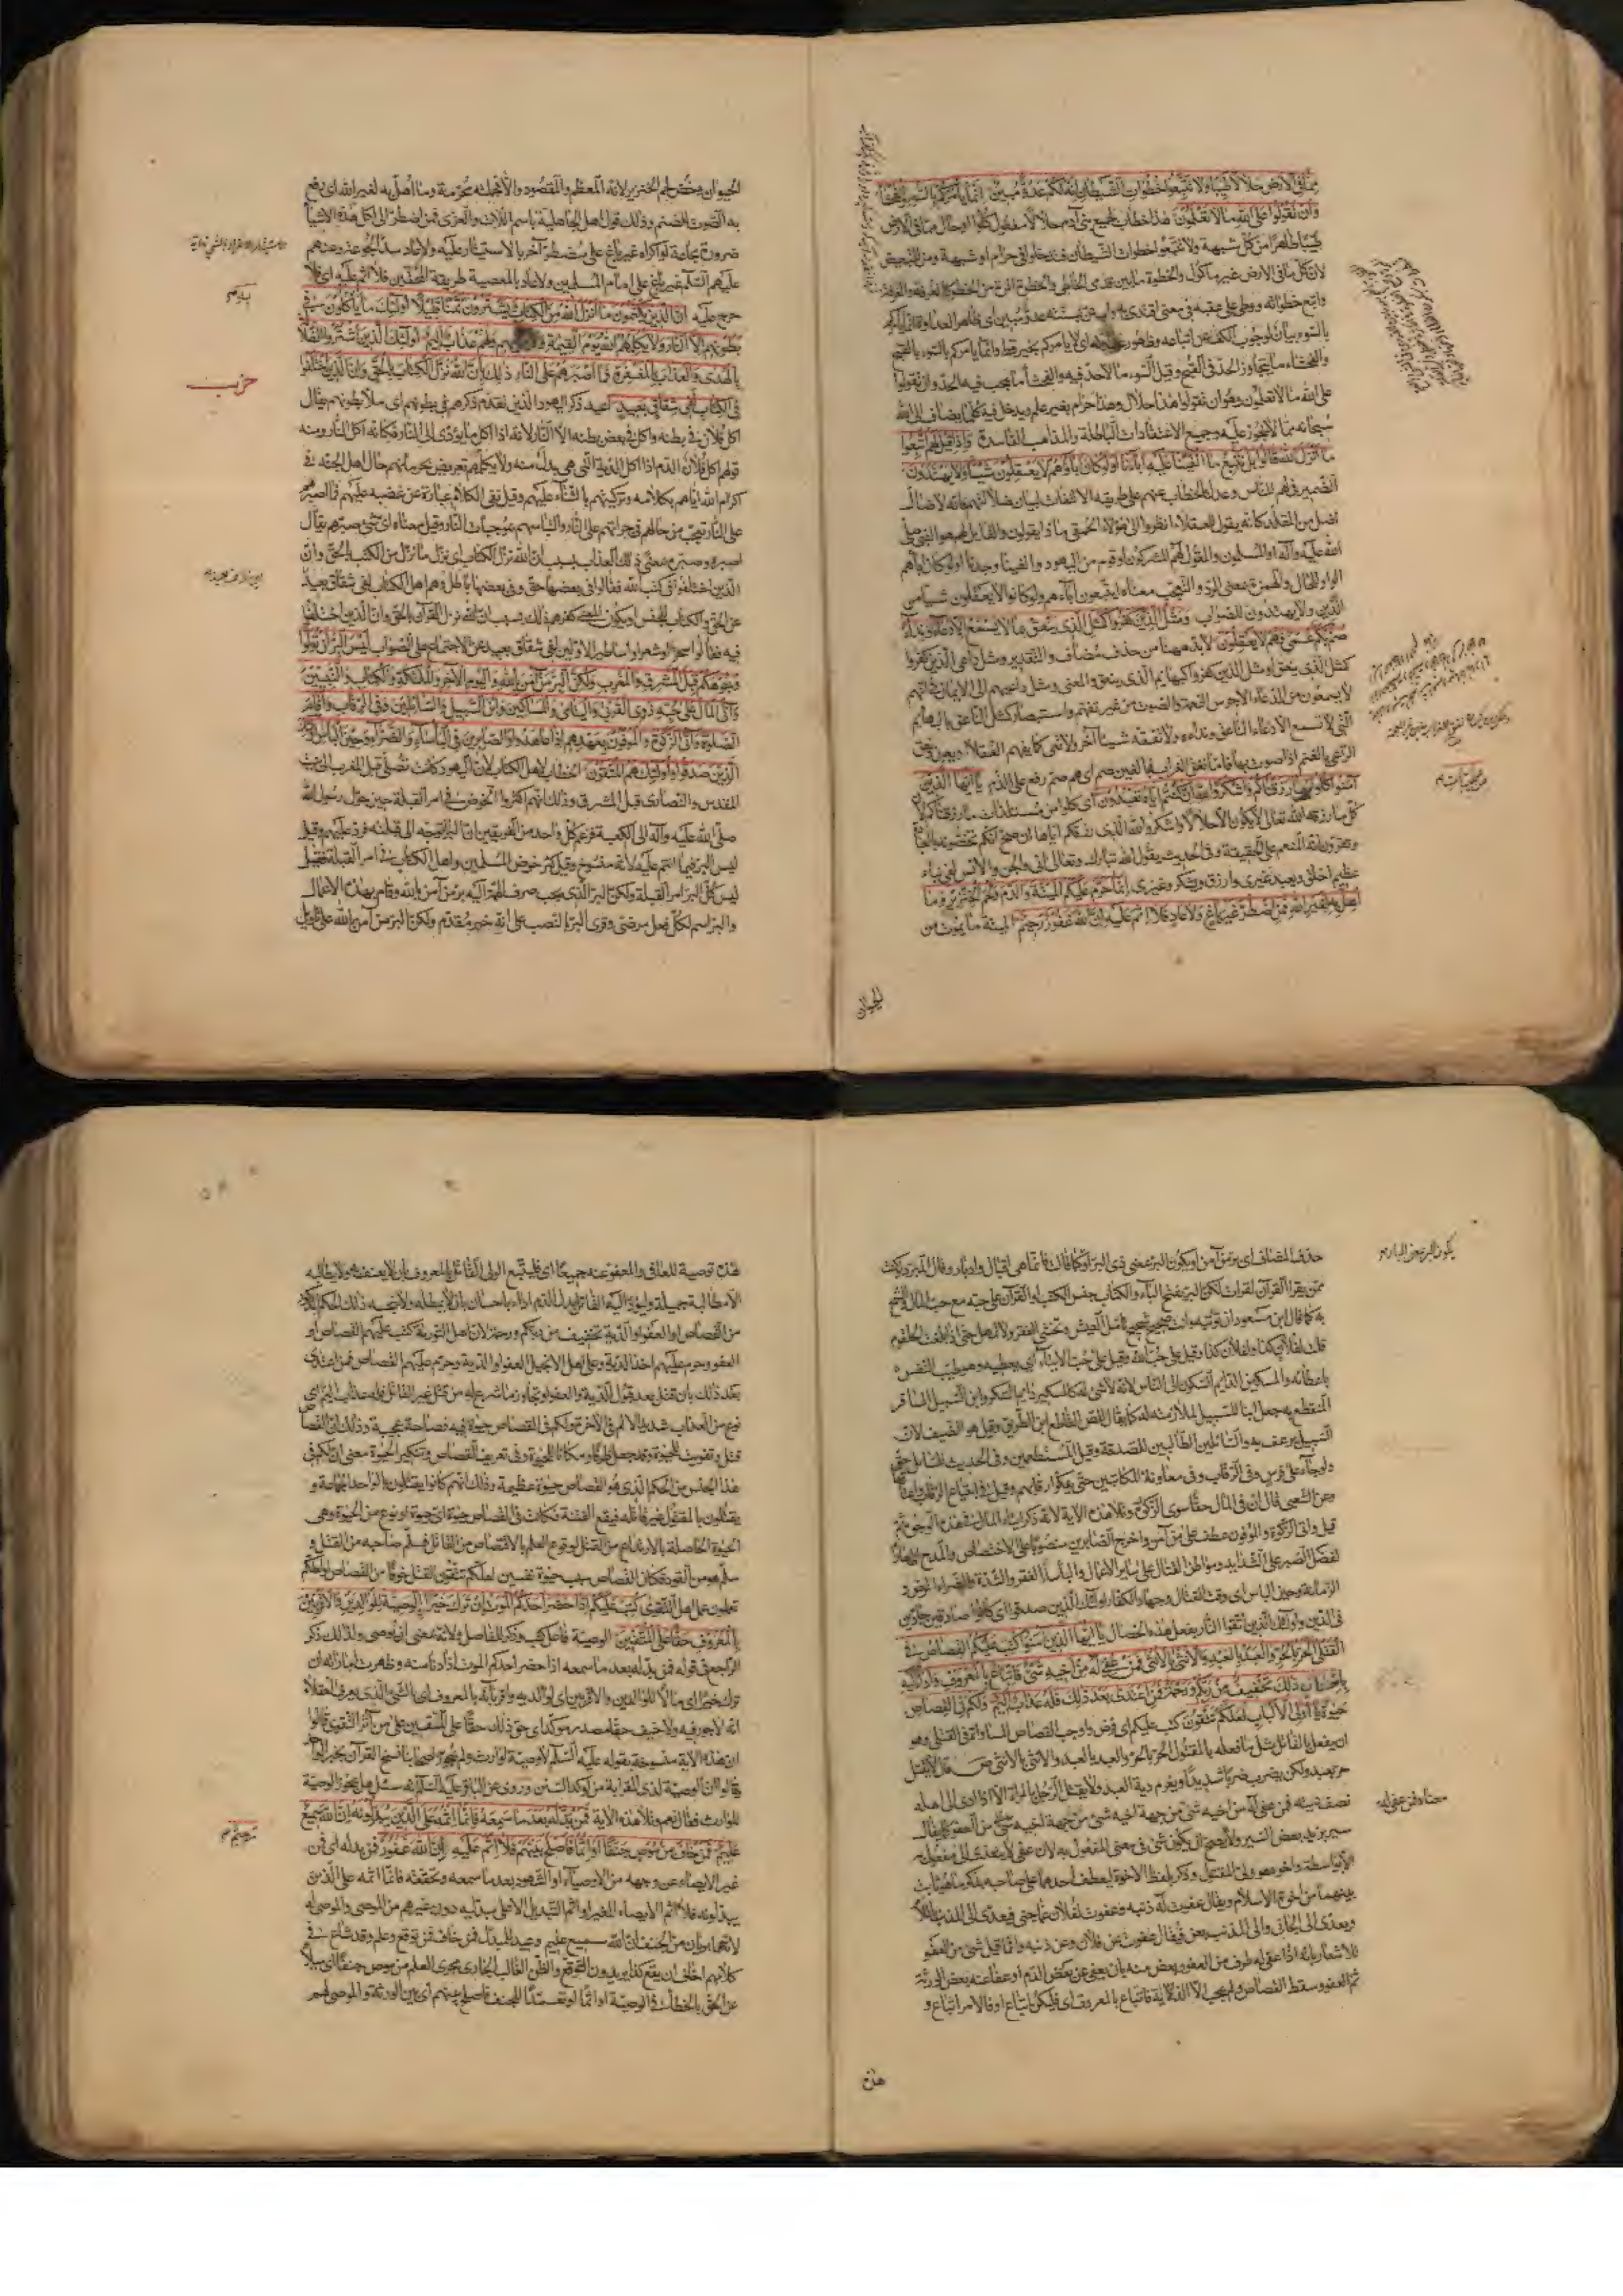 مما فى الارض حلالا طيبا ولا تتبعوا خطوات الشيطان انه لكم عدو مبين انما يأمركم بالسوء والفحشاء
وان تقولوا على الله ما لا تعلمون هذا خطاب لجميع بنى آدم حلالا مفعول كلوا او حال مما فى الارض
طيبا طاهرا من كل شبهة ولا تتبعوا خطوات الشيطان فتدخلوا فى حرام او شبهة ومن للتبعيض
لان كل ما فى الارض غير مأكول والخطوة ما بين قدمى الخاطى والخطوة المرة من الخطو
واتبع خطواته ووطى على عقبه فى معنى اقتدى به واستن بسنته عدو مبين اى ظاهر العداوة
بالسوء بيان لوجوب الكف عن اتباعه وظهور اى لا يامركم بخير قط وانما يامركم بالسوء بالقبيح
والفحشاء ما يتجاوز الحد فى القبح وقيل السوء ما لا حد فيه والفحشاء ما يجب فيه الحد وان تقولوا
على الله ما لا تعلمون وهو ان تقولوا هذا حلال وهذا حرام بغير علم ويدخل فيه كل ما يضاف الى الله
سبحانه مما لا يجوز عليه وجميع الاعتقادات الباطلة والمذاهب الفاسدة واذا قيل لهم اتبعوا
ما انزل الله قالوا بل نتبع ما الفينا عليه آباءنا اولو كان آباؤهم لا يعقلون شيئا ولا يهتدون
الضمير فى لهم للناس وعدل بالخطاب عنهم على طريقه الالتفات لبيان ضلالتهم فانه لا ضال
اضل من المقلد كانه يقول للعقلاء انظروا الى هؤلاء الحمقى ما ذا يقولون والقايل لهم هو النبى صلى
الله عليه وآله او المسلمون والمقول لهم المشركون او قوم من اليهود والفينا وجدنا اولو كان آباهم
الواو للحال والهمزة بمعنى الرد والتعجب معناه ايتبعون آباءهم ولو كانوا لا يعقلون شيا من
الدين ولا يهتدون للصواب ومثل الذين كفروا كمثل الذى ينعق بما لا يسمع الا دعاء ونداء
صم بكم عمى فهم لا يعقلون لا بد هيهنا من حذف مضاف والتقدير ومثل داعى الذين كفروا
كمثل الذى ينعق او مثل الذين كفروا كبهايم الذى ينعق والمعنى ومثل داعيهم الى الايمان فى انهم
لا يسمعون من الدعاء الا جرس النغمة والصوت من غير تفهم واستبصار كمثل الناعق بالبهايم
التى لا تسمع الا دعاء الناعق ونداءه ولا تفقه شيئا آخر ولا تعى كما يفهم العقلاء ويعون ونعق
الراعى بالغنم اذا صوت بها فاما نغق الغراب فبالغين صم اى هم صم رفع على الذم يا ايها الذين
آمنوا كلوا من طيبات ما رزقناكم واشكروا لله ان كنتم اياه تعبدون اى كلوا من مستلذات ما رزقناكم لان
كل ما رزقه الله تعالى لا يكون الا حلالا واشكروا لله الذى رزقكم اياها ان صح انكم تخصونه بالعبادة
وتقرون انه المنعم على الحقيقة وفى الحديث يقول الله تبارك وتعالى انى والجن والانس لفى نباء
عظيم اخلق ويعبد غيرى وارزق ويشكر غيرى انما حرم عليكم الميتة والدم ولحم الخنزير وما
اهل به لغير الله فمن اضطر غير باغ ولا عاد فلا اثم عليه ان الله غفور رحيم الميتة ما يموت من
الحيوان
الحيوان وخص لحم الخنزير لانه المعظم والمقصود والا فجملته محرمة وما اهل به لغير الله اى رفع
به الصوت للصنم وذلك قول اهل الجاهلية باسم اللات والعزى فمن اضطر الى اكل هذه الاشياء
ضرورة مجاعة او اكراه غير باغ على مضطر آخر بالاستيثار عليه ولا عاد سد الجوعة وعنهم
عليهم السلم غير باغ على امام المسلمين ولا عاد بالمعصية طريقة المحقين فلا اثم عليه اى فلا
حرج عليه ان الذين يكتمون ما انزل الله من الكتاب ويشترون به ثمنا قليلا اولئك ما يأكلون فى
بطونهم الا النار ولا يكلمهم الله يوم القيمة ولا يزكيهم ولهم عذاب اليم اولئك الذين اشتروا الضلالة
بالهدى والعذاب بالمغفرة فما اصبرهم على النار ذلك بان الله نزل الكتاب بالحق وان الذين اختلفوا
حزب
فى الكتاب لفى شقاق بعيد اعيد ذكر اليهود الذين تقدم ذكرهم فى بطونهم اى ملأ بطونهم يقال
اكل فلان فى بطنه واكل فى بعض بطنه الا النار لانه اذا اكل ما يؤدى الى النار فكانه اكل النار ومنه
قولهم اكل فلان الدم اذا اكل الدية التى هى بدل منه ولا يكلمهم تعريض بحرمانهم حال اهل الجنة فى
اكرام الله اياهم بكلامه وتزكيتهم بالثناء عليهم وقيل نفى الكلام عبارة عن غضبه عليهم فما اصبرهم
على النار تعجب من حالهم فى جرأتهم على النار والتباسهم بموجبات النار وقيل معناه اى شئ صبرهم يقال
اصبره وصبره بمعنى ذلك العذاب بسبب ان الله نزل الكتاب اى نزل ما نزل من الكتب بالحق وان
الذين اختلفوا فى كتب الله فقالوا فى بعضها حق وفى بعضها باطل وهم اهل الكتاب لفى شقاق بعيد
عن الحق والكتاب للجنس او يكون كفرهم ذلك بسبب ان الله نزل القرآن بالحق وان الذين اختلفوا
فيه فقالوا سحر او شعر او اساطير الاولين لفى شقاق بعيد عن الاجتماع على الصواب ليس البر ان تولوا
وجوهكم قبل المشرق والمغرب ولكن البر من آمن بالله واليوم الآخر والملائكة والكتاب والنبيين
وآتى المال على حبه ذوى القربى واليتامى والمساكين وابن السبيل والسائلين وفى الرقاب واقام
الصلوة وآتى الزكوة والموفون بعهدهم اذا عاهدوا والصابرين فى البأساء والضراء وحين البأس اولئك
الذين صدقوا واولئك هم المتقون الخطاب لاهل الكتاب لان اليهود كانت تصلى قبل المغرب الى بيت
المقدس والنصارى قبل المشرق وذلك انهم اكثروا الخوض فى امر القبلة حين حول رسول الله
صلى الله عليه وآله الى الكعبة فزعم كل واحد من الفريقين ان البر التوجه الى قبلته فرد عليهم وقيل
ليس البر فيما انتم عليه لانه منسوخ وقيل كثر خوض المسلمين واهل الكتاب فى امر القبلة فقيل
ليس كل البر امر القبلة ولكن البر الذى يجب صرف الهمة اليه بر من آمن بالله وقام بهذه الاعمال
والبر اسم لكل فعل مرضى وقرئ البر بالنصب على انه خبر مقدم ولكن البر من آمن بالله على تاويل
يكون البر بمعنى البار
حذف المضاف اى بر من آمن او يكون البر بمعنى ذى البر او كما قالت فانما هى اقبال وادبار وقال المبرد لو كنت
ممن يقرأ القرآن لقرأت لكن البر بفتح الباء والكتاب جنس الكتب او القرآن على حبه مع حب المال والشح
به كما قال ابن مسعود ان تؤتيه وانت صحيح شحيح تأمل العيش وتخشى الفقر ولا تمهل حتى اذا بلغت الحلقوم
قلت لفلان كذا ولفلان كذا وقيل على حب الله وقيل على حب الايتاء اى يعطيه وهو طيب النفس
باعطائه والمسكين الدايم السكون الى الناس لانه لا شئ له كالمسكير الدايم السكر وابن السبيل المسافر
المنقطع به جعل ابنا للسبيل لملازمته له كما يقال للص القاطع ابن الطريق وقيل هو الضيف لان
السبيل يرعف به والسائلين الطالبين للصدقة وقيل المستطعمين وفى الحديث للسائل حق
ولو جاء على فرس وفى الرقاب وفى معاونة المكاتبين حتى يفكوا رقابهم وقيل فى ابتياع الرقاب واعتاقها
وعن الشعبى قال ان فى المال حقا سوى الزكوة وتلا هذه الآية لانه ذكر ايتاء المال فى هذه الوجوه ثم
قيل وآتى الزكوة والموفون عطف على من آمن واخرج الصابرين منصوبا على الاختصاص والمدح اظهارا
لفضل الصبر على الشدايد ومواطن القتال على ساير الاعمال والبأساء الفقر والشدة والضراء المرض و
الزمانة وحين البأس اى وقت القتال وجهاد الكفار اولئك الذين صدقوا اى كانوا صادقين جادين
فى الدين واولئك الذين اتقوا النار بفعل هذه الخصال يا ايها الذين آمنوا كتب عليكم القصاص فى
القتلى الحر بالحر والعبد بالعبد والانثى بالانثى فمن عفى له من اخيه شئ فاتباع بالمعروف واداء اليه
باحسان ذلك تخفيف من ربكم ورحمة فمن اعتدى بعد ذلك فله عذاب اليم ولكم فى القصاص
حيوة يا اولى الالباب لعلكم تتقون كتب عليكم اى فرض واوجب القصاص المساواة فى القتلى وهو
ان يفعل بالقاتل مثل ما فعله بالمقتول الحر بالحر والعبد بالعبد والانثى بالانثى قال لا يقتل
حر بعبد ولكن يضرب ضربا شديدا ويغرم دية العبد ولا يقتل الرجل بالمراة الا اذا ادى الى اهله
معناه فمن عفى له
نصف ديته فمن عفى له من اخيه شئ من جهة اخيه شئ من العفو كما يقال
سير بزيد بعض السير ولا يصح ان يكون شئ فى معنى المفعول به لان عفى لا يتعدى الى مفعول به
الا بواسطة واخوه هو ولى المقتول وذكر بلفظ الاخوة ليعطف احدهما على صاحبه بذكر ما هو ثابت
بينهما من اخوة الاسلام ويقال عفوت له ذنبه وعفوت لفلان عما جنى فيعدى الى الذنب باللام
ويعدى الى الجانى والى الذنب بعن فيقال عفوت عن فلان وعن ذنبه وانما قيل شئ من العفو
للاشعار بانه اذا عفى له طرف من العفو وبعض منه بان يعفى عن بعض الدم او عفا عنه بعض الورثة
تم العفو وسقط القصاص ولم يجب الا الدية فاتباع بالمعروف اى فليكن اتباع او فالامر اتباع و
هذه
هذه توصية للعافى والمعفو عنه جميعا اى فليتبع الولى القاتل بالمعروف بان لا يعنف به ولا يطالبه
الا مطالبة جميلة وليؤد اليه القاتل بدل الدم اداء باحسان بان لا يمطله ولا يبخسه ذلك الحكم المذكور
من القصاص او العفو او الدية تخفيف من ربكم ورحمة لان اهل التورية كتب عليهم القصاص او
العفو وحرم عليهم اخذ الدية وعلى اهل الانجيل العفو او الدية وحرم عليهم القصاص فمن اعتدى
بعد ذلك بان قتل بعد قبول الدية او العفو او تجاوز ما شرع له من قتل غير القاتل فله عذاب اليم اى
نوع من العذاب شديد الالم فى الآخرة ولكم فى القصاص حيوة فيه فصاحة عجيبة وذلك ان القصاص
قتل وتفويت للحيوة وقد جعل ظرفا ومكانا للحيوة وفى تعريف القصاص وتنكير الحيوة معنى ان لكم فى
هذا الجنس من الحكم الذى هو القصاص حيوة عظيمة وذلك انهم كانوا يقتلون بالواحد الجماعة و
يقتلون بالمقتول غير قاتله فيقع الفتنة فكانت فى القصاص حيوة اى حيوة او نوع من الحيوة وهى
الحيوة الحاصلة بالارتداع من القتل لوقوع العلم بالاقتصاص من القاتل فسلم صاحبه من القتل و
سلم هو من القود فكان القصاص سبب حيوة نفسين لعلكم تتقون القتل خوفا من القصاص او لعلكم
تعملون عمل اهل التقوى كتب عليكم اذا حضر احدكم الموت ان ترك خيرا الوصية للوالدين والاقربين
بالمعروف حقا على المتقين الوصية فاعل كتب وذكر للفاصل ولانه بمعنى ان يوصى ولذلك ذكر
الراجع فى قوله فمن بدله بعد ما سمعه اذا حضر احدكم الموت اذا دنا منه وظهرت اماراته ان
ترك خيرا اى مالا للوالدين والاقربين اى لوالديه واقربائه بالمعروف اى بالشئ الذى يعرف العقلاء
انه لا جور فيه ولا حيف حقا مصدر مؤكد اى حق ذلك حقا على المتقين على من آثر التقوى قالوا
ان هذه الآية منسوخة بقوله عليه السلم لا وصية لوارث ولم يجوز اصحابنا نسخ القرآن بخبر الواحد
وقالوا ان الوصية لذى القرابة من اوكد السنن وروى عن الباقر عليه السلم انه سئل هل يجوز الوصية
للوارث فقال نعم وتلا هذه الآية فمن بدله بعد ما سمعه فانما اثمه على الذين يبدلونه ان الله سميع
عليم فمن خاف من موص جنفا او اثما فاصلح بينهم فلا اثم عليه ان الله غفور فمن بدله اى فمن
رحيم
غير الايصاء عن وجهه من الاوصياء او الشهود بعد ما سمعه وتحققه فانما اثمه على الذين
يبدلونه فلا اثم الايصاء المغير او اثم التبديل الا على مبدليه دون غيرهم من الموصى والموصى له
لانهما بريان من الجنف ان الله سميع عليم وعيد للمبدل فمن خاف فمن توقع وعلم وقد شاع فى
كلامهم اخاف ان يقع كذا يريدون التوقع والظن الغالب الجارى مجرى العلم من موص جنفا اى ميلا
عن الحق بالخطأ فى الوصية او اثما او تعمدا للجنف فاصلح بينهم اى بين الورثة والموصى لهم